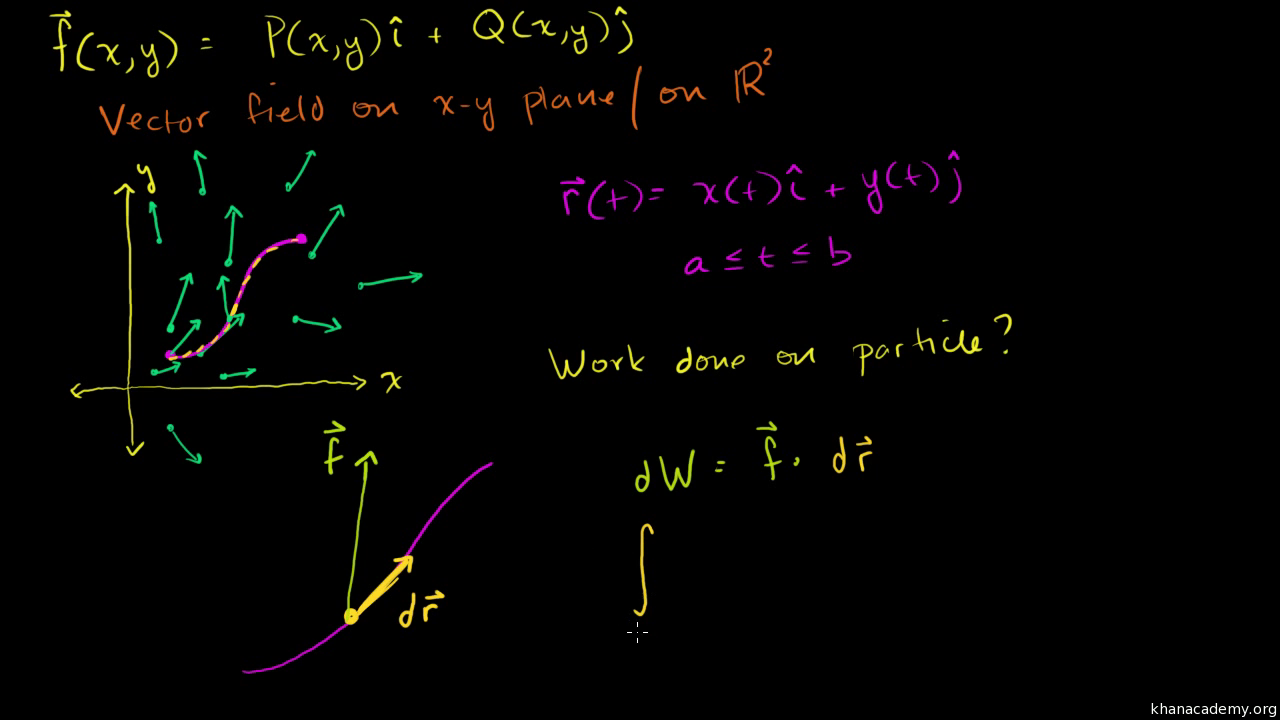 f⃗(x,y) = P(x,y)î + Q(x,y)ĵ
Vector field on x-y plane / on ℝ²
y
r⃗(t) = x(t)î + y(t)ĵ
a ≤ t ≤ b
x
Work done on particle?
f⃗
dW = f⃗ · dr⃗
∫
dr⃗
khanacademy.org